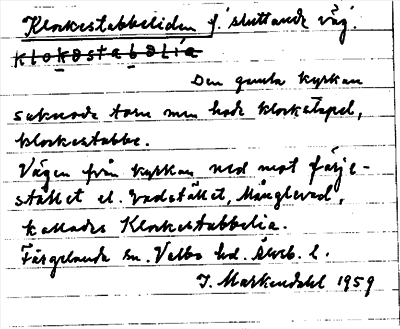 Klockestabbeliden f. sluttande väg.
klokəstabəlia
Den gamla kyrkan
saknade torn men hade klockstapel,
klockestabbe.
Vägen från kyrkan ned mot färje-
stället el. vadstället, Månglevad,
kallades Klockestabbelia.
Färgelanda sn. Valbo hd. Älvb. l.
J. Markendahl 1959